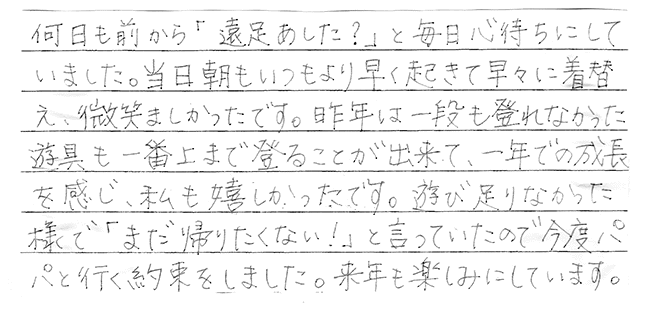 何日も前から「遠足あした？」と毎日心待ちにして
いました。当日朝もいつもより早く起きて早々に着替
え、微笑ましかったです。昨年は一段も登れなかった
遊具も一番上まで登ることが出来て、一年での成長
を感じ、私も嬉しかったです。遊び足りなかった
様で「まだ帰りたくない！」と言っていたので今度パ
パと行く約束をしました。来年も楽しみにしています。